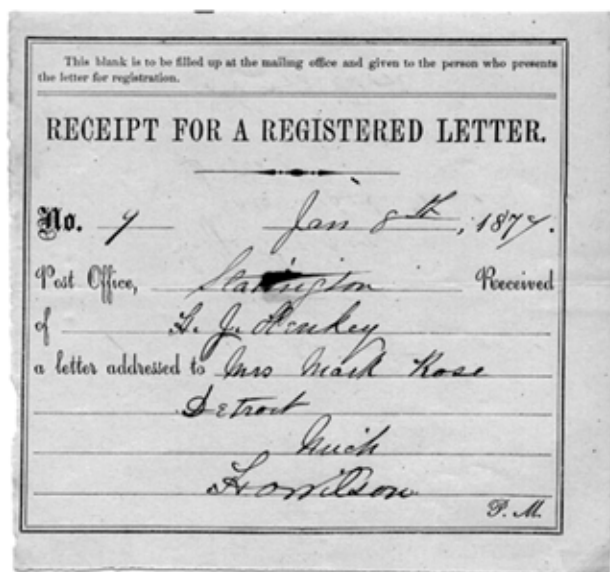 This blank is to be filled up at the mailing office and given to the person who presents
the letter for registration.
RECEIPT FOR A REGISTERED LETTER.
No. 9 Jan 8th, 1877.
Post Office, Received
of J.
a letter addressed to Mrs Mark Rose
Detroit
Mich
Wilson
P. M.